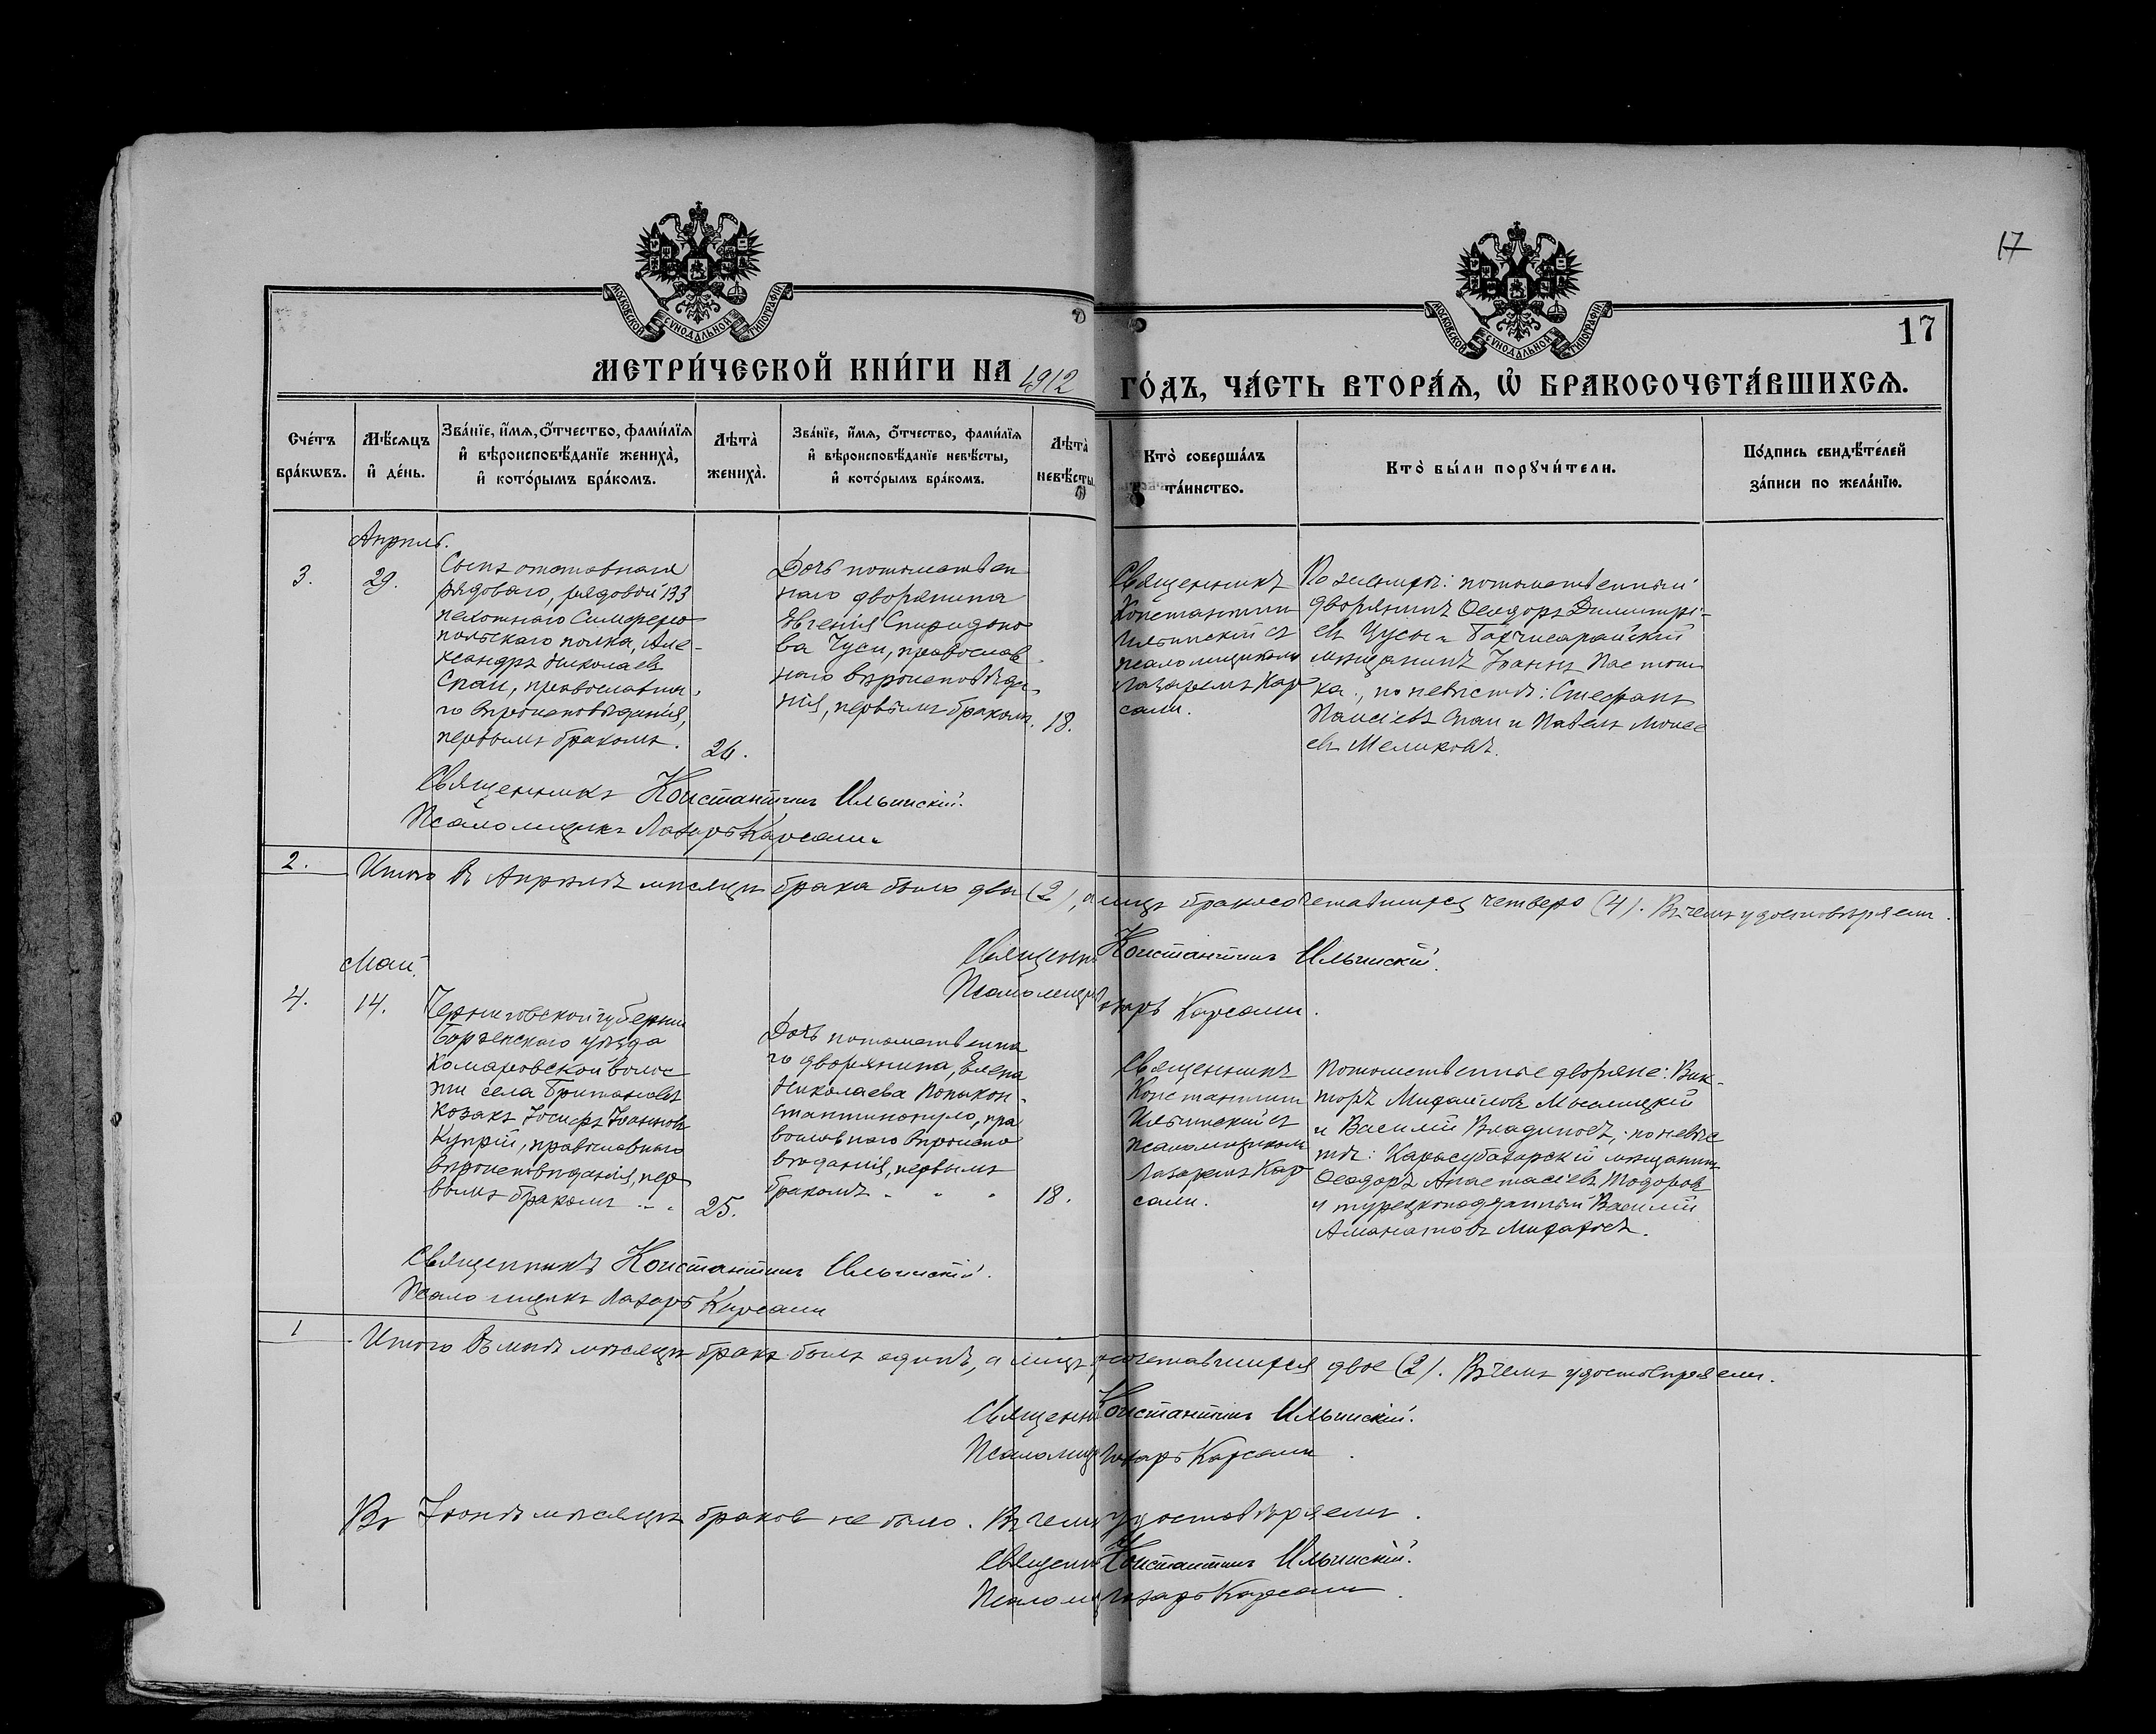 17
МОСКОВСКОЙ СѴНОДАЛЬНОЙ ТИПОГРАФІИ
МОСКОВСКОЙ СѴНОДАЛЬНОЙ ТИПОГРАФІИ
17
МЕТРИ́ЧЕСКОЙ КНИ́ГИ НА 1912 ГО́ДЪ, ЧА́СТЬ ВТОРА́Ѧ, Ѽ БРАКОСОЧЕТА́ВШИХСѦ.
Сче́тъ
бра́кѡвъ.
Мѣ́сѧцъ
и҆ де́нь.
Зва́нїе, и҆́мѧ, ѻ҆́тчество, фами́лїѧ
и҆ вѣроисповѣ́данїе жениха̀,
и҆ кото́рымъ бра́комъ.
Лѣта̀
жениха̀.
Зва́нїе, и҆́мѧ, ѻ҆́тчество, фами́лїѧ
и҆ вѣроисповѣ́данїе невѣ́сты,
и҆ кото́рымъ бра́комъ.
Лѣта̀
невѣ́сты.
Кто̀ соверша́лъ
та́инство.
Кто̀ бы́ли порꙋчи́тели.
По́дпись свидѣ́телей
за́писи по жела́нїю.
Апрель.
3.
29.
Сынъ отставнаго
рядоваго, рядовой 133
пехотнаго Симферо
польскаго полка, Але-
ксандръ Николаевъ
Спаи, православна-
го вѣроисповѣданія,
первымъ бракомъ.
26.
Дочь потомствен
наго дворянина
Евгенія Спиридоно
ва Чуси, православ-
наго вѣроисповѣда-
нія, первымъ бракомъ.
18.
Священникъ
Константинъ
Ильинскій съ
псаломщикомъ
Лазаремъ Кар
сали.
По женихѣ: потомственный
дворянинъ Ѳеодоръ Димитрі-
евъ и Бахчисарайскій
мѣщанинъ Іоаннъ
по невѣстѣ: Стефанъ
Паисіевъ Спаи и Павелъ Моисе
евъ Меликовъ.
Священникъ Константинъ Ильинскій.
Псаломщикъ Лазарь Карсали
2.
Итого въ Апрелѣ мѣсяцѣ брака было два (2), а лицъ бракосочетавшихся четверо (4). Въ чемъ удостовѣряемъ.
Священникъ Константинъ Ильинскій.
Псаломщикъ Лазарь Карсали.
Май.
4.
14.
Черниговской губерніи
Борзенскаго уѣзда
Комаровской волос
ти села Британовъ
козакъ Іосифъ Іоанновъ
Куприй, православнаго
вѣроисповѣданія, пер
вымъ бракомъ
25.
Дочь потомственна
го дворянина, Елена
Николаева Попыкон-
стантинопуло, пра
вославнаго вѣроиспо
вѣданія, первымъ
бракомъ
18.
Священникъ
Константинъ
Ильинскій съ
псаломщикомъ
Лазаремъ Кар
сали.
Потомственные дворяне: Вик-
торъ Михаиловъ Мысли́цкій
и Василій; по невѣс
тѣ: Карасубазарскій мѣщанинъ
Ѳеодоръ Анастасіевъ Тодоровъ
и турецкоподданный Василій
Аманатовъ
Священникъ Константинъ Ильинскій.
Псаломщикъ Лазарь Карсали
1
Итого въ маѣ мѣсяцѣ бракъ былъ одинъ, а лицъ сочетавшихся двое (2). Въ чемъ удостовѣряемъ.
Священникъ Константинъ Ильинскій.
Псаломщикъ Лазарь Карсали.
Въ Іюнѣ мѣсяцѣ браковъ не было. Въ чемъ удостовѣряемъ.
Священникъ Константинъ Ильинскій.
Псаломщикъ Лазарь Карсали.